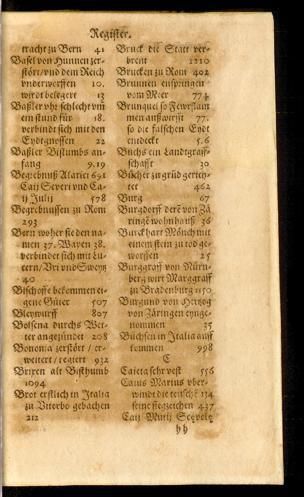 Register.
tracht zu Bern 41
Basel von Hunnen zer-
stört/vnd dem Reich
vnderworffen 10.
wirdt belegert 13
Baßler vhr schlecht vm
ein stund für 18.
verbindt sich mit den
Eydtgnossen 22
Baßler Bistumbs an-
fang 9.19
Begrebnuß Alarici 691
Caij Severi vnd Ca-
ij Julij 578
Begrebnussen zu Rom
293
Bern woher sie den na-
men 37. Wapen 38.
verbindet sich mit Lu-
cern/Vri vnd Sweytz
40
Bischoffe bekommen ei-
gene Güter 507
Bleywurff 807
Bolsena durchs Wet-
ter angezündet 208
Bononia zerstört / er-
weitert / regiert 932
Brixen alt Bisthumb
1094
Brot erstlich in Italia
zu Viterbo gebachen
212
Bruck die Statt ver-
brent 1210
Brucken zu Rom 402
Brunnen entspringen
vom Meer 774
Brunquel so Fewrflam
men außwerfft 77.
so die falschen Eydt
entdeckt 5.6
Buchs ein Landtgraff-
schafft 30
Bücher zu grüd gerich-
tet 462
Burg 67
Burgdorff derē von Zä
ringē wohnhauß 36
Burckhart Mönch mit
einem stein zu tod ge-
worffen 25
Burggraff von Nürn-
berg wirt Marggraff
zu Bradenburg 1150
Burgund von Hertzog
von Zäringen eynge-
nommen 35
Büchsen in Italia auff
kommen 998
C
Caieta sehr vest 556
Caius Marius vber-
windt die teutschē 134
seine siegzeichen 437
Caij Mutij Scevole
hh